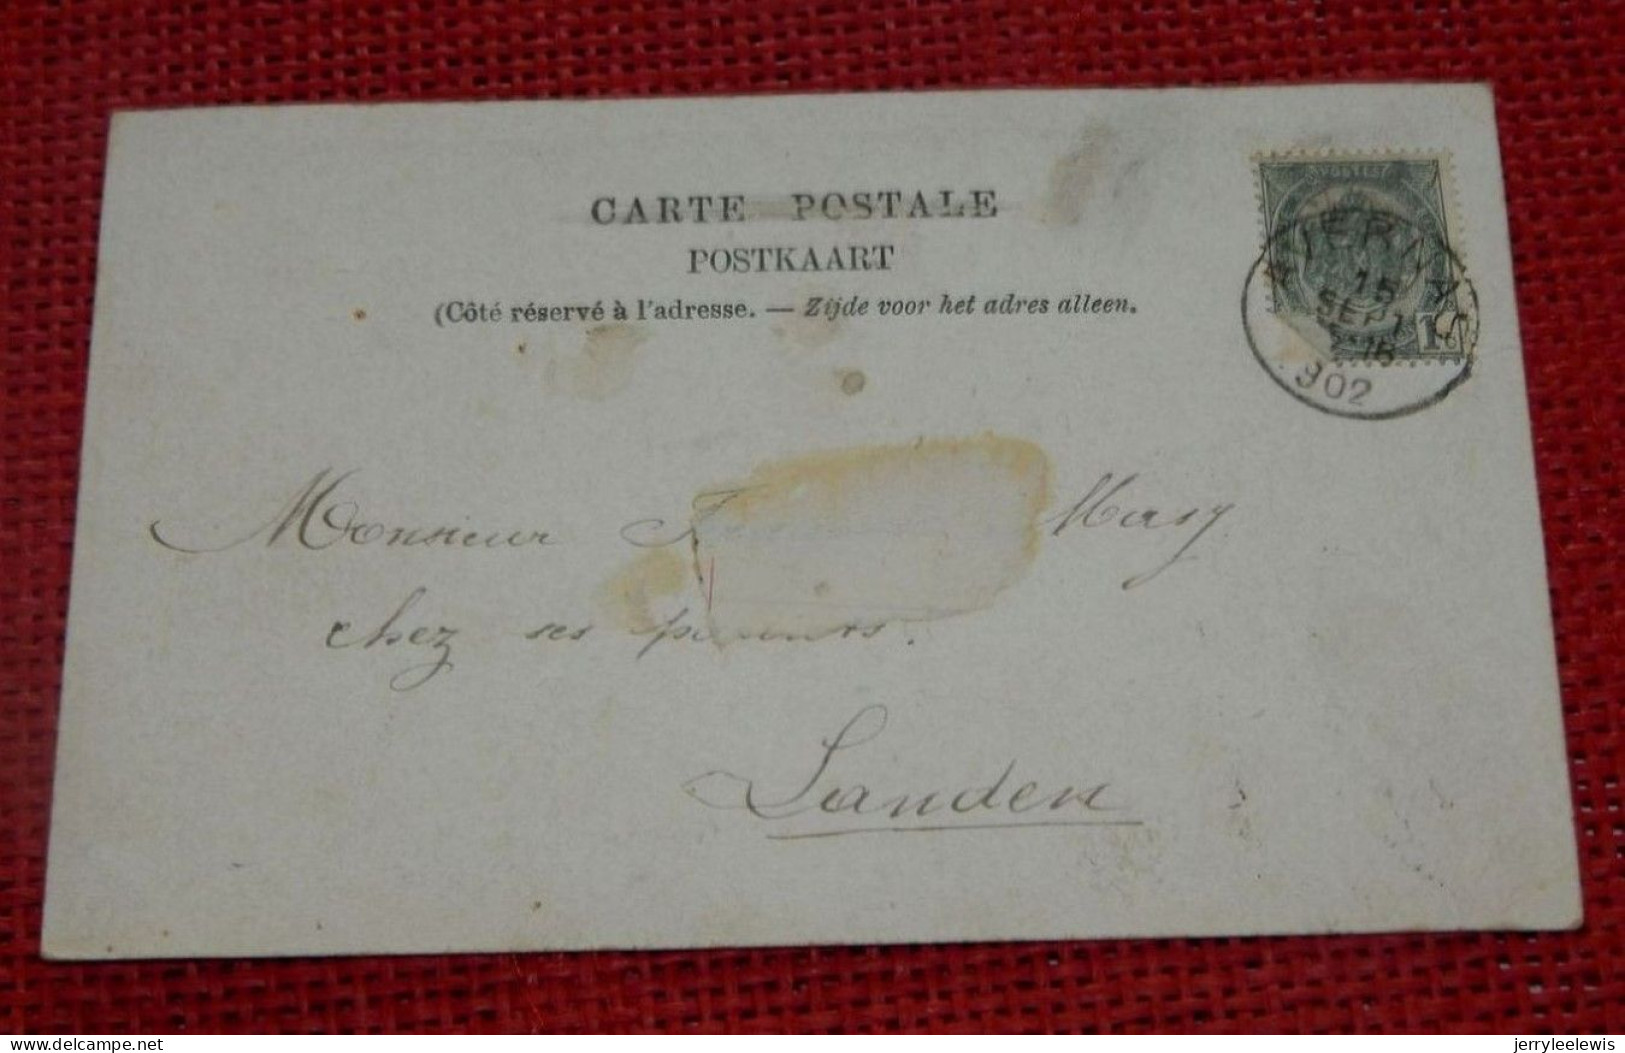 CARTE POSTALE
POSTKAART
(Côté réservé à l'adresse. — Zijde voor het adres alleen.
POSTES
15
SEPT
902
1c
Monsieur Masy
chez ses parents.
Landen
delcampe.net
jerryleelewis